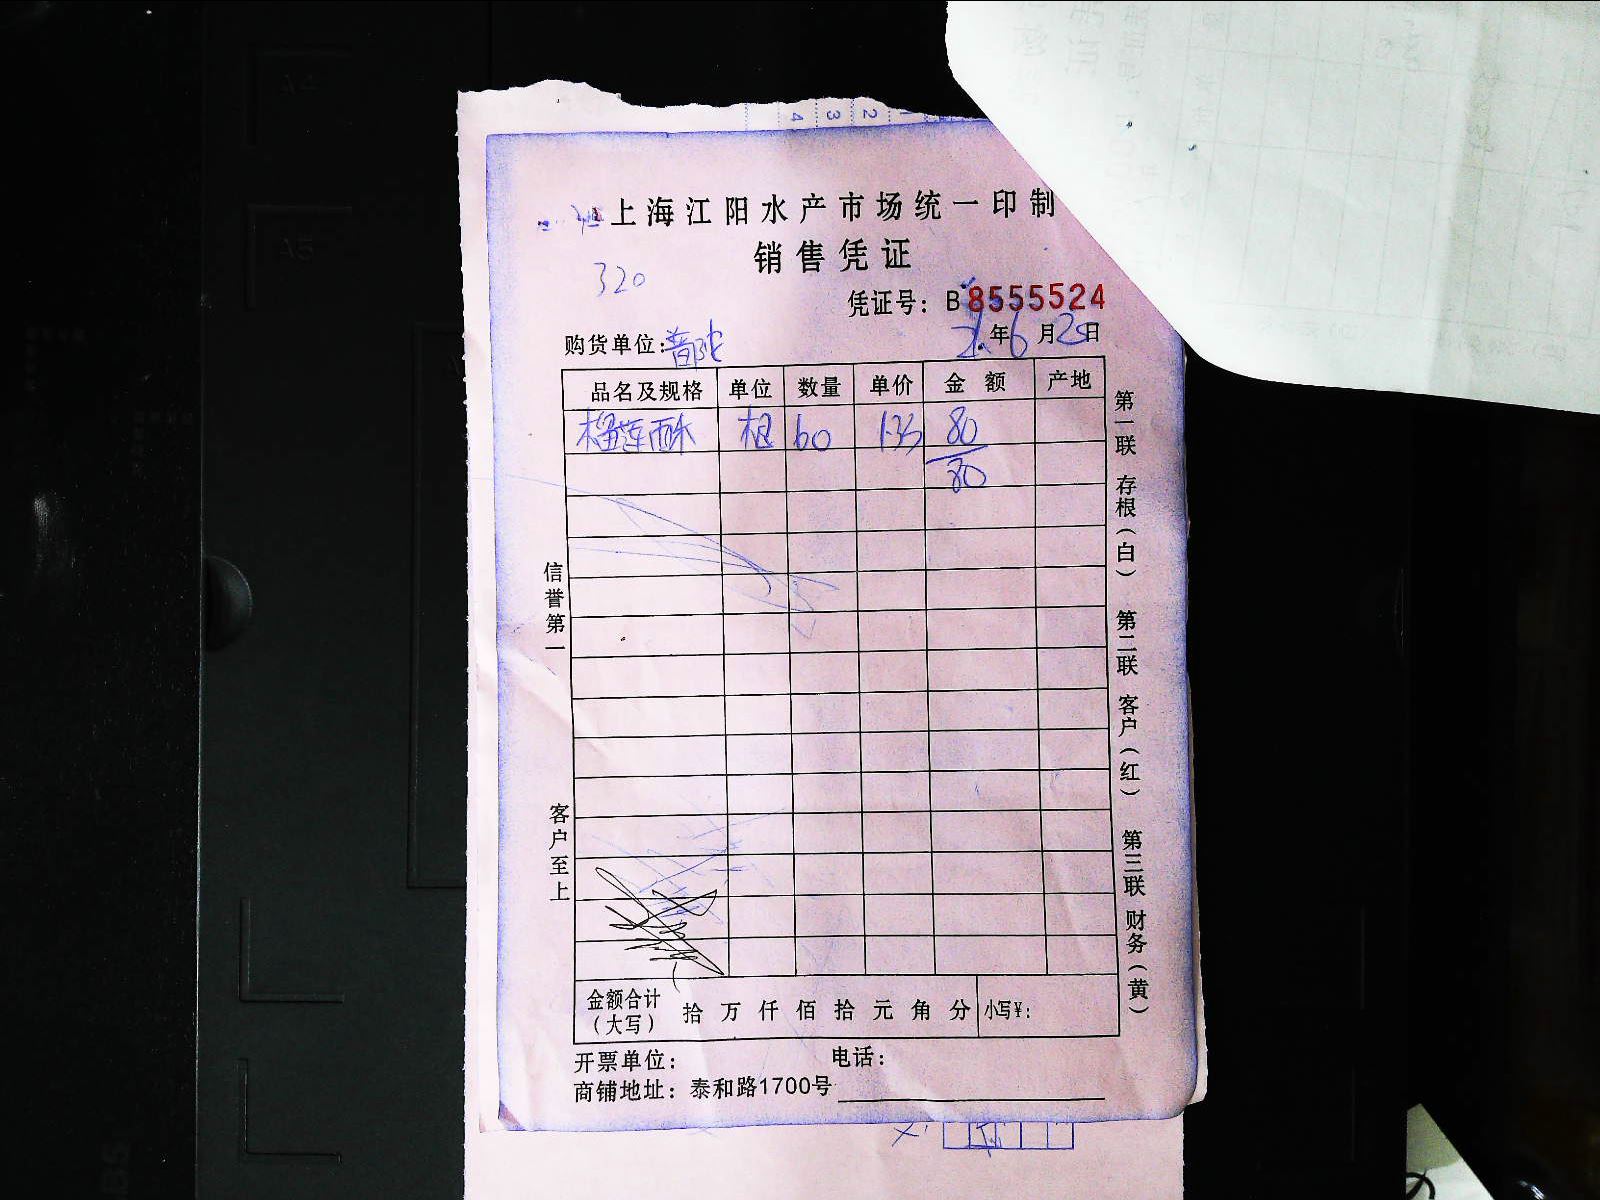 4 3 2 1
上海江阳水产市场统一印制
销售凭证
320
凭证号：B 8555524
购货单位：普陀
21年6月20日
品名及规格 单位 数量 单价 金额 产地
榴莲酥 根 60 1.33 80
80
信誉第一
客户至上
第一联 存根（白） 第二联 客户（红） 第三联 财务（黄）
金额合计（大写） 拾 万 仟 佰 拾 元 角 分 小写¥：
开票单位： 电话：
商铺地址：泰和路1700号